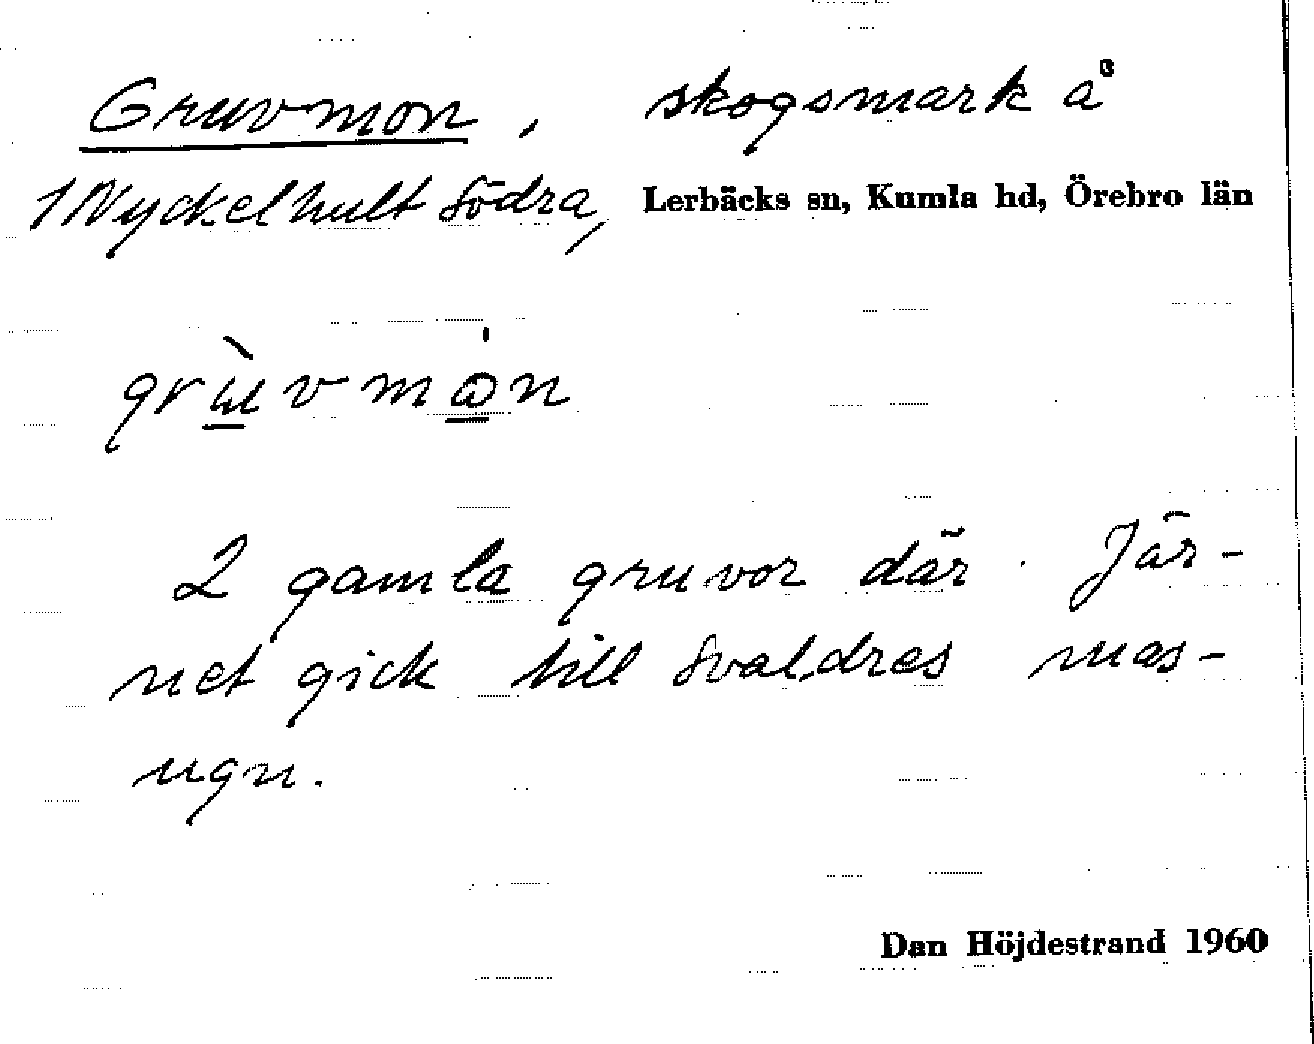 Gruvmon, skogsmark å
1 Nyckelhult Södra, Lerbäcks sn, Kumla hd, Örebro län
grùvmån
2 gamla gruvor där. Jär-
net gick till Svaldres mas-
ugn.
Dan Höjdestrand 1960